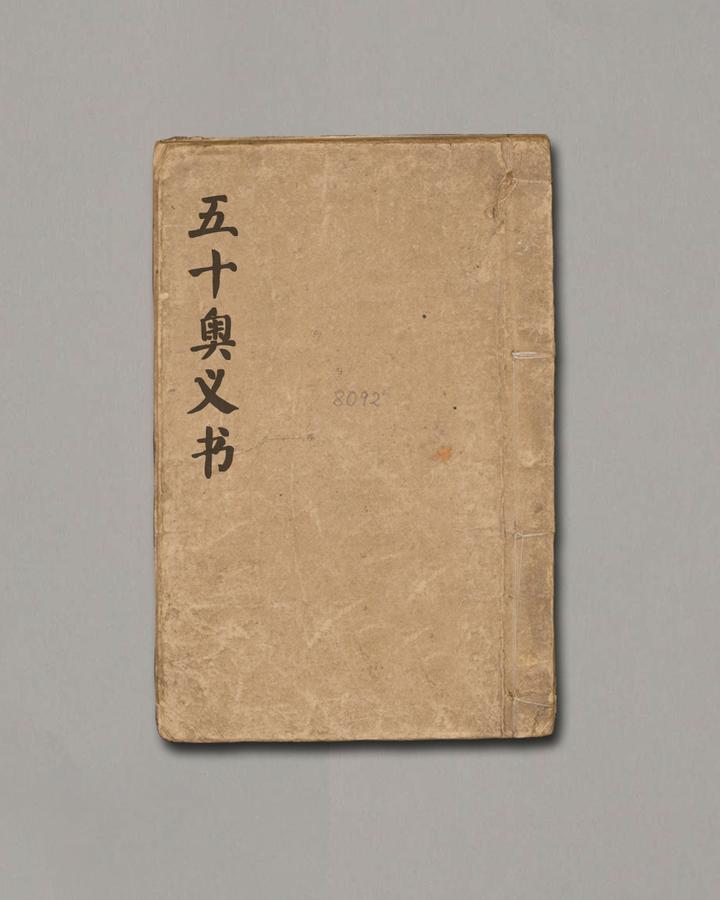 五十奥义书
8092